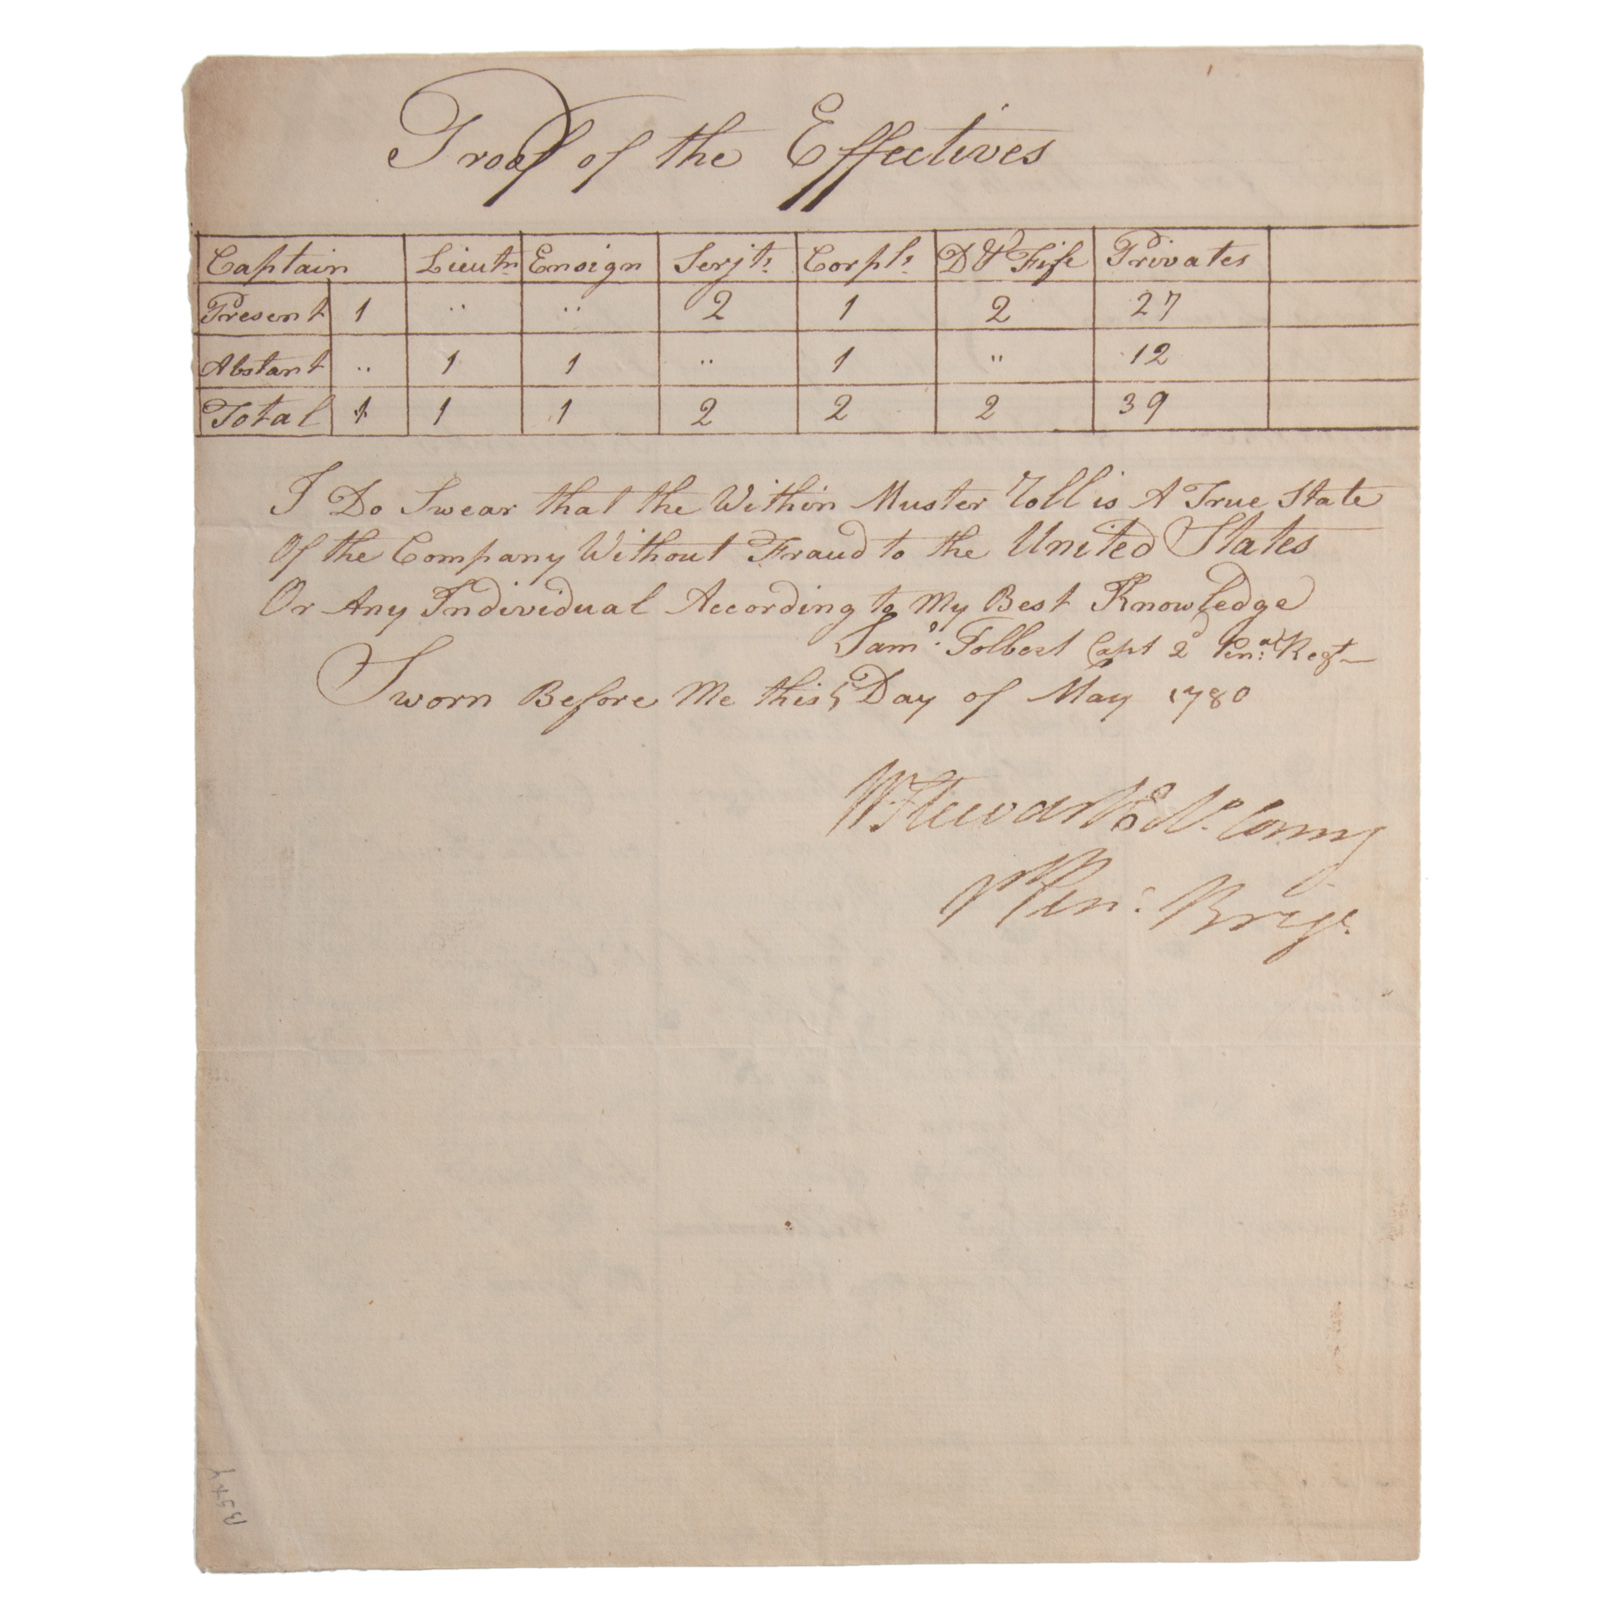 Proof of the Effectives
Captain Lieutn Ensign Serjts Corpls D & Fife Privates
Present 1 .. .. 2 1 2 27
Abstant .. 1 1 .. 1 " 12
Total 1 1 1 2 2 2 39
I Do Swear that the Within Muster Roll is A True State
Of the Company Without Fraud to the United States
Or Any Individual According to My Best Knowledge
Saml. Tolbert Capt 2d Pena. Regt
Sworn Before Me this 5 Day of May 1780
W Stewart Col. Comg
Pen: Brige.
B54Y